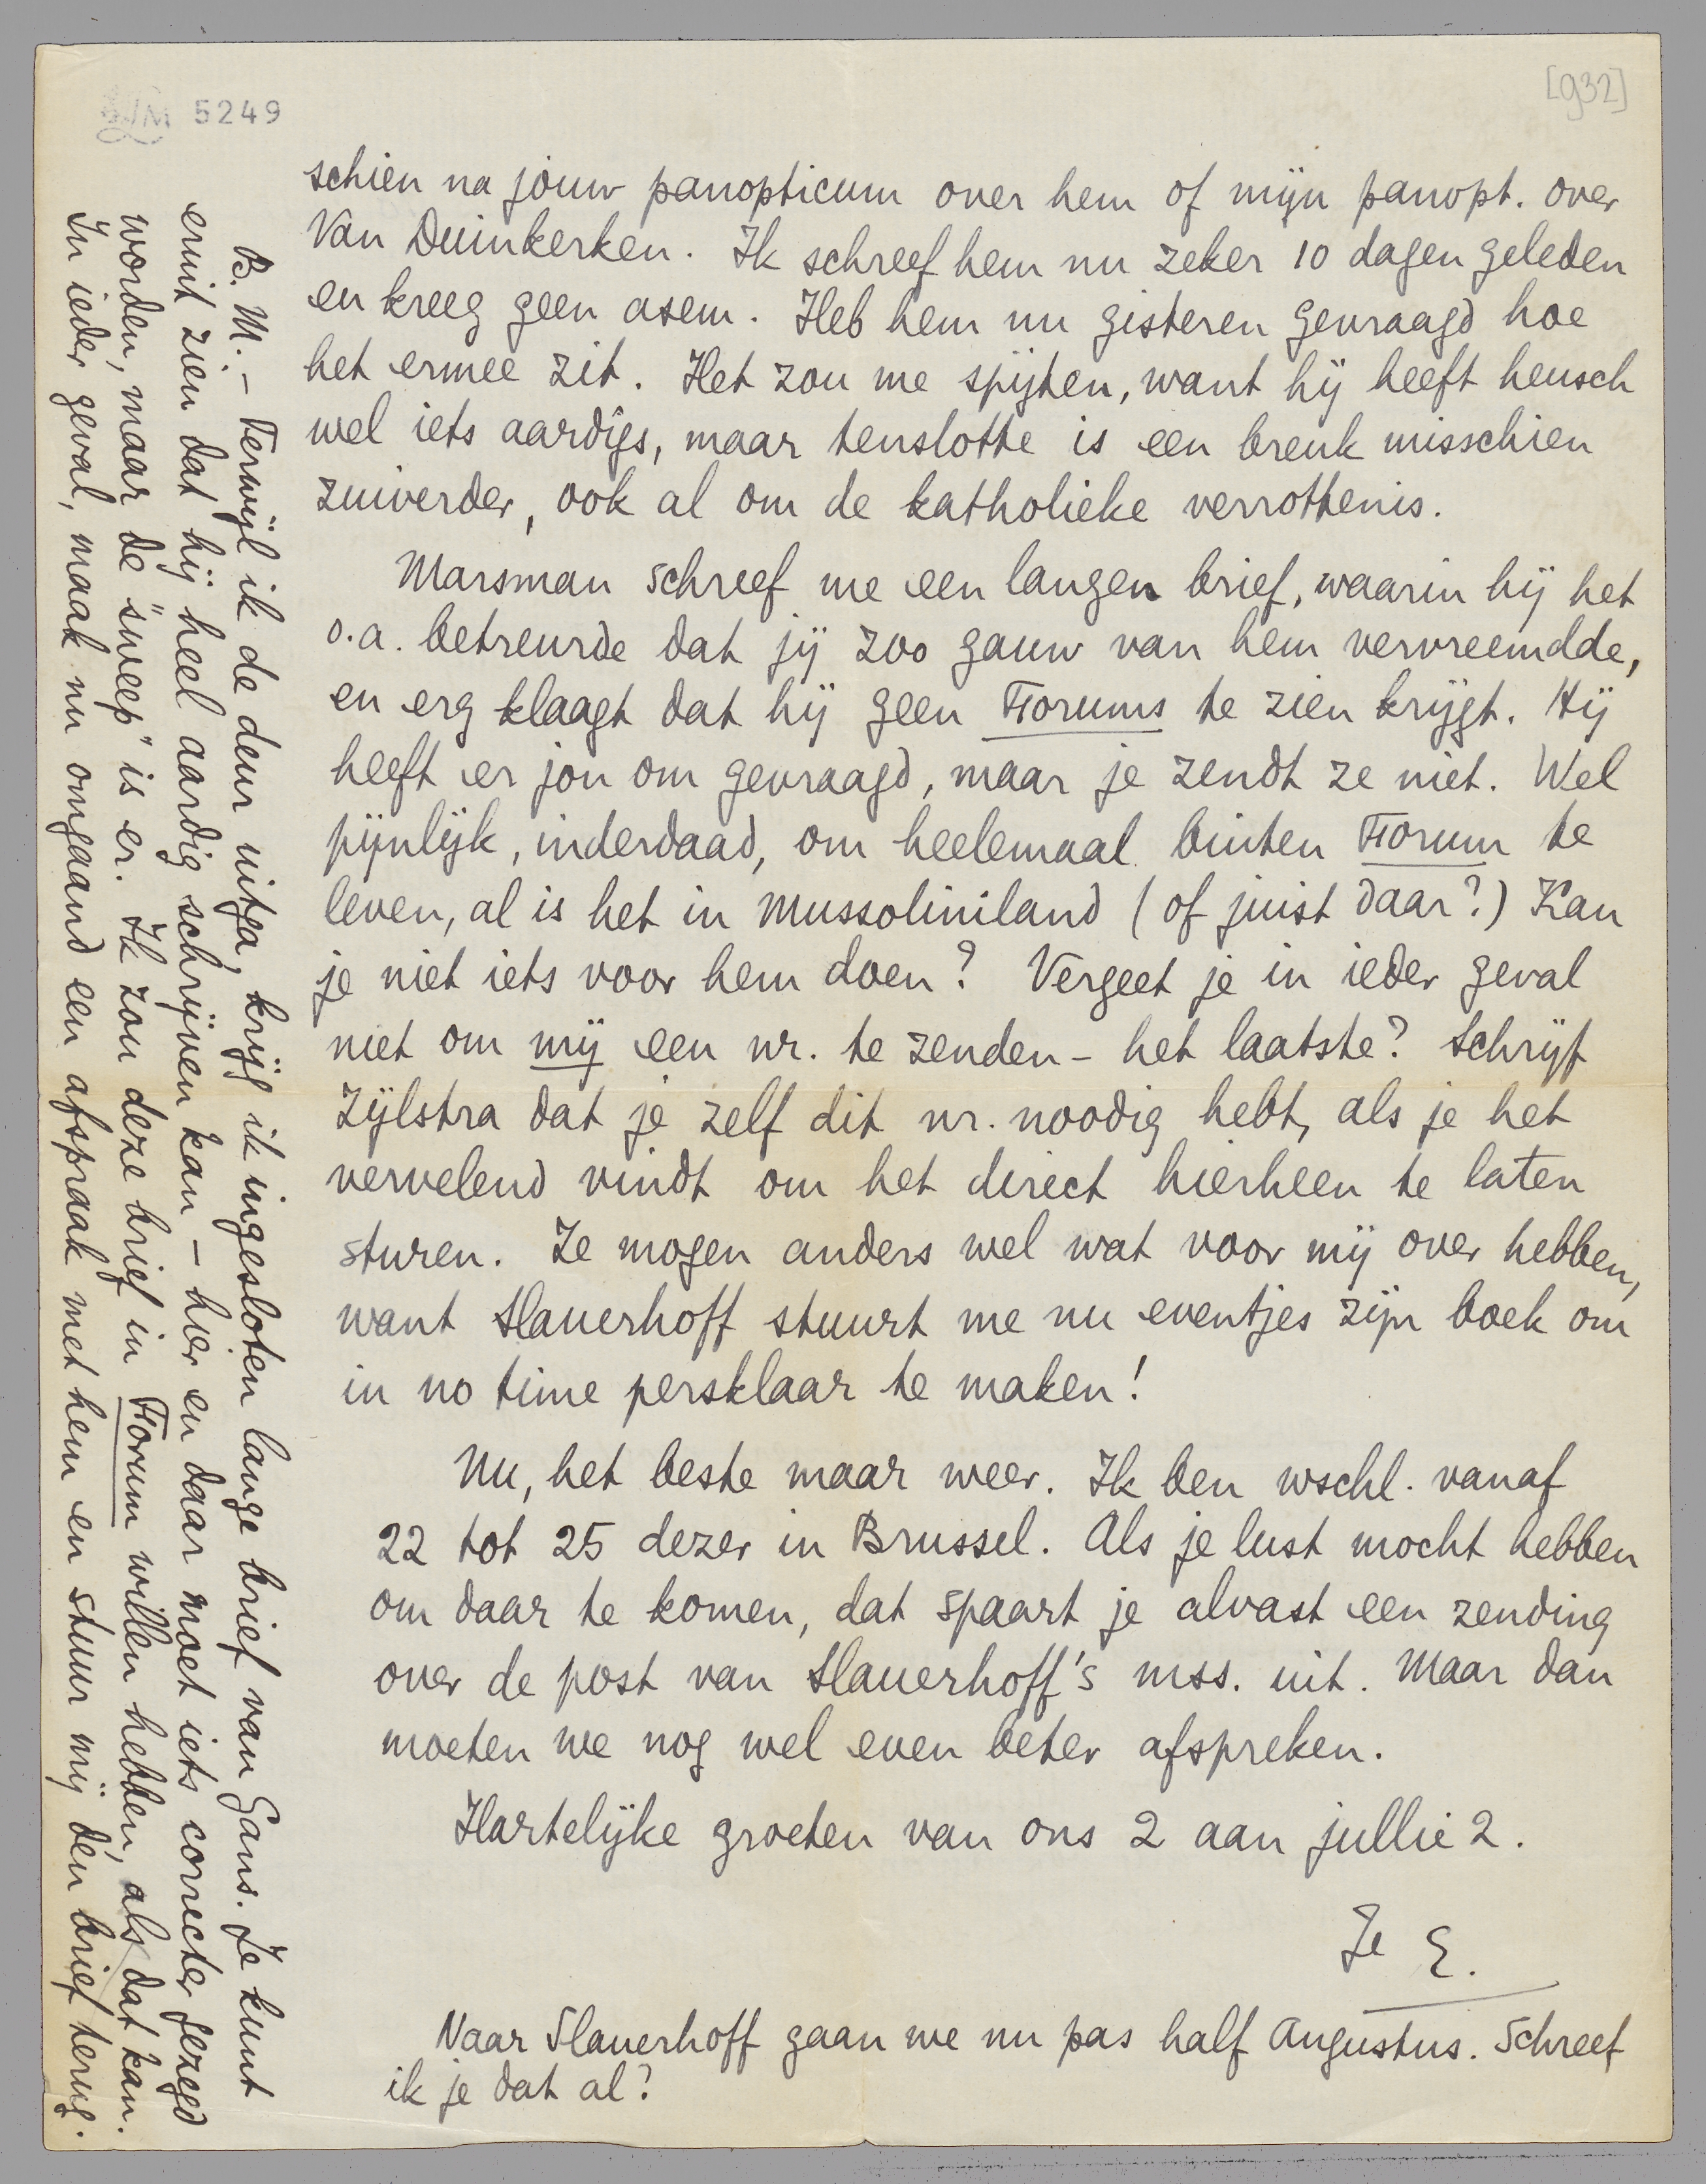 [932]
LM 5249
schien na jouw panopticum over hem of mijn panopt. over
Van Duinkerken. Ik schreef hem nu zeker 10 dagen geleden
en kreeg geen asem. Heb hem nu gisteren gevraagd hoe
het ermee zit. Het zou me spijten, want hij heeft heusch
wel iets aardigs, maar tenslotte is een breuk misschien
zuiverder, ook al om de katholieke verrottenis.
Marsman schreef me een langen brief, waarin hij het
o.a. betreurde dat jij zoo gauw van hem vervreemdde,
en erg klaagt dat hij geen Forums te zien krijgt. Hij
heeft er jou om gevraagd, maar je zendt ze niet. Wel
pijnlijk, inderdaad, om heelemaal buiten Forum te
leven, al is het in Mussoliniland (of juist daar?) Kan
je niet iets voor hem doen? Vergeet je in ieder geval
niet om mij een nr. te zenden – het laatste? Schrijf
Zijlstra dat je zelf dit nr. noodig hebt, als je het
vervelend vindt om het direct hierheen te laten
sturen. Ze mogen anders wel wat voor mij over hebben,
want Slauerhoff stuurt me nu eventjes zijn boek om
in no time persklaar te maken!
Nu, het beste maar weer. Ik ben wschl. vanaf
22 tot 25 dezer in Brussel. Als je lust mocht hebben
om daar te komen, dat spaart je alvast een zending
over de post van Slauerhoff's mss. uit. Maar dan
moeten we nog wel even beter afspreken.
Hartelijke groeten van ons 2 aan jullie 2.
Je E.
Naar Slauerhoff gaan we nu pas half Augustus. Schreef
ik je dat al?
B. M. – Terwijl ik de deur uitga, krijg ik ingesloten lange brief van Gans. Je kunt
eruit zien dat hij heel aardig schrijven kan – hier en daar moet iets correcter gezegd
worden, maar de "sweep" is er. Ik zou deze brief in Forum willen hebben, als dat kan.
In ieder geval, maak nu omgaand een afspraak met hem en stuur mij den brief terug.